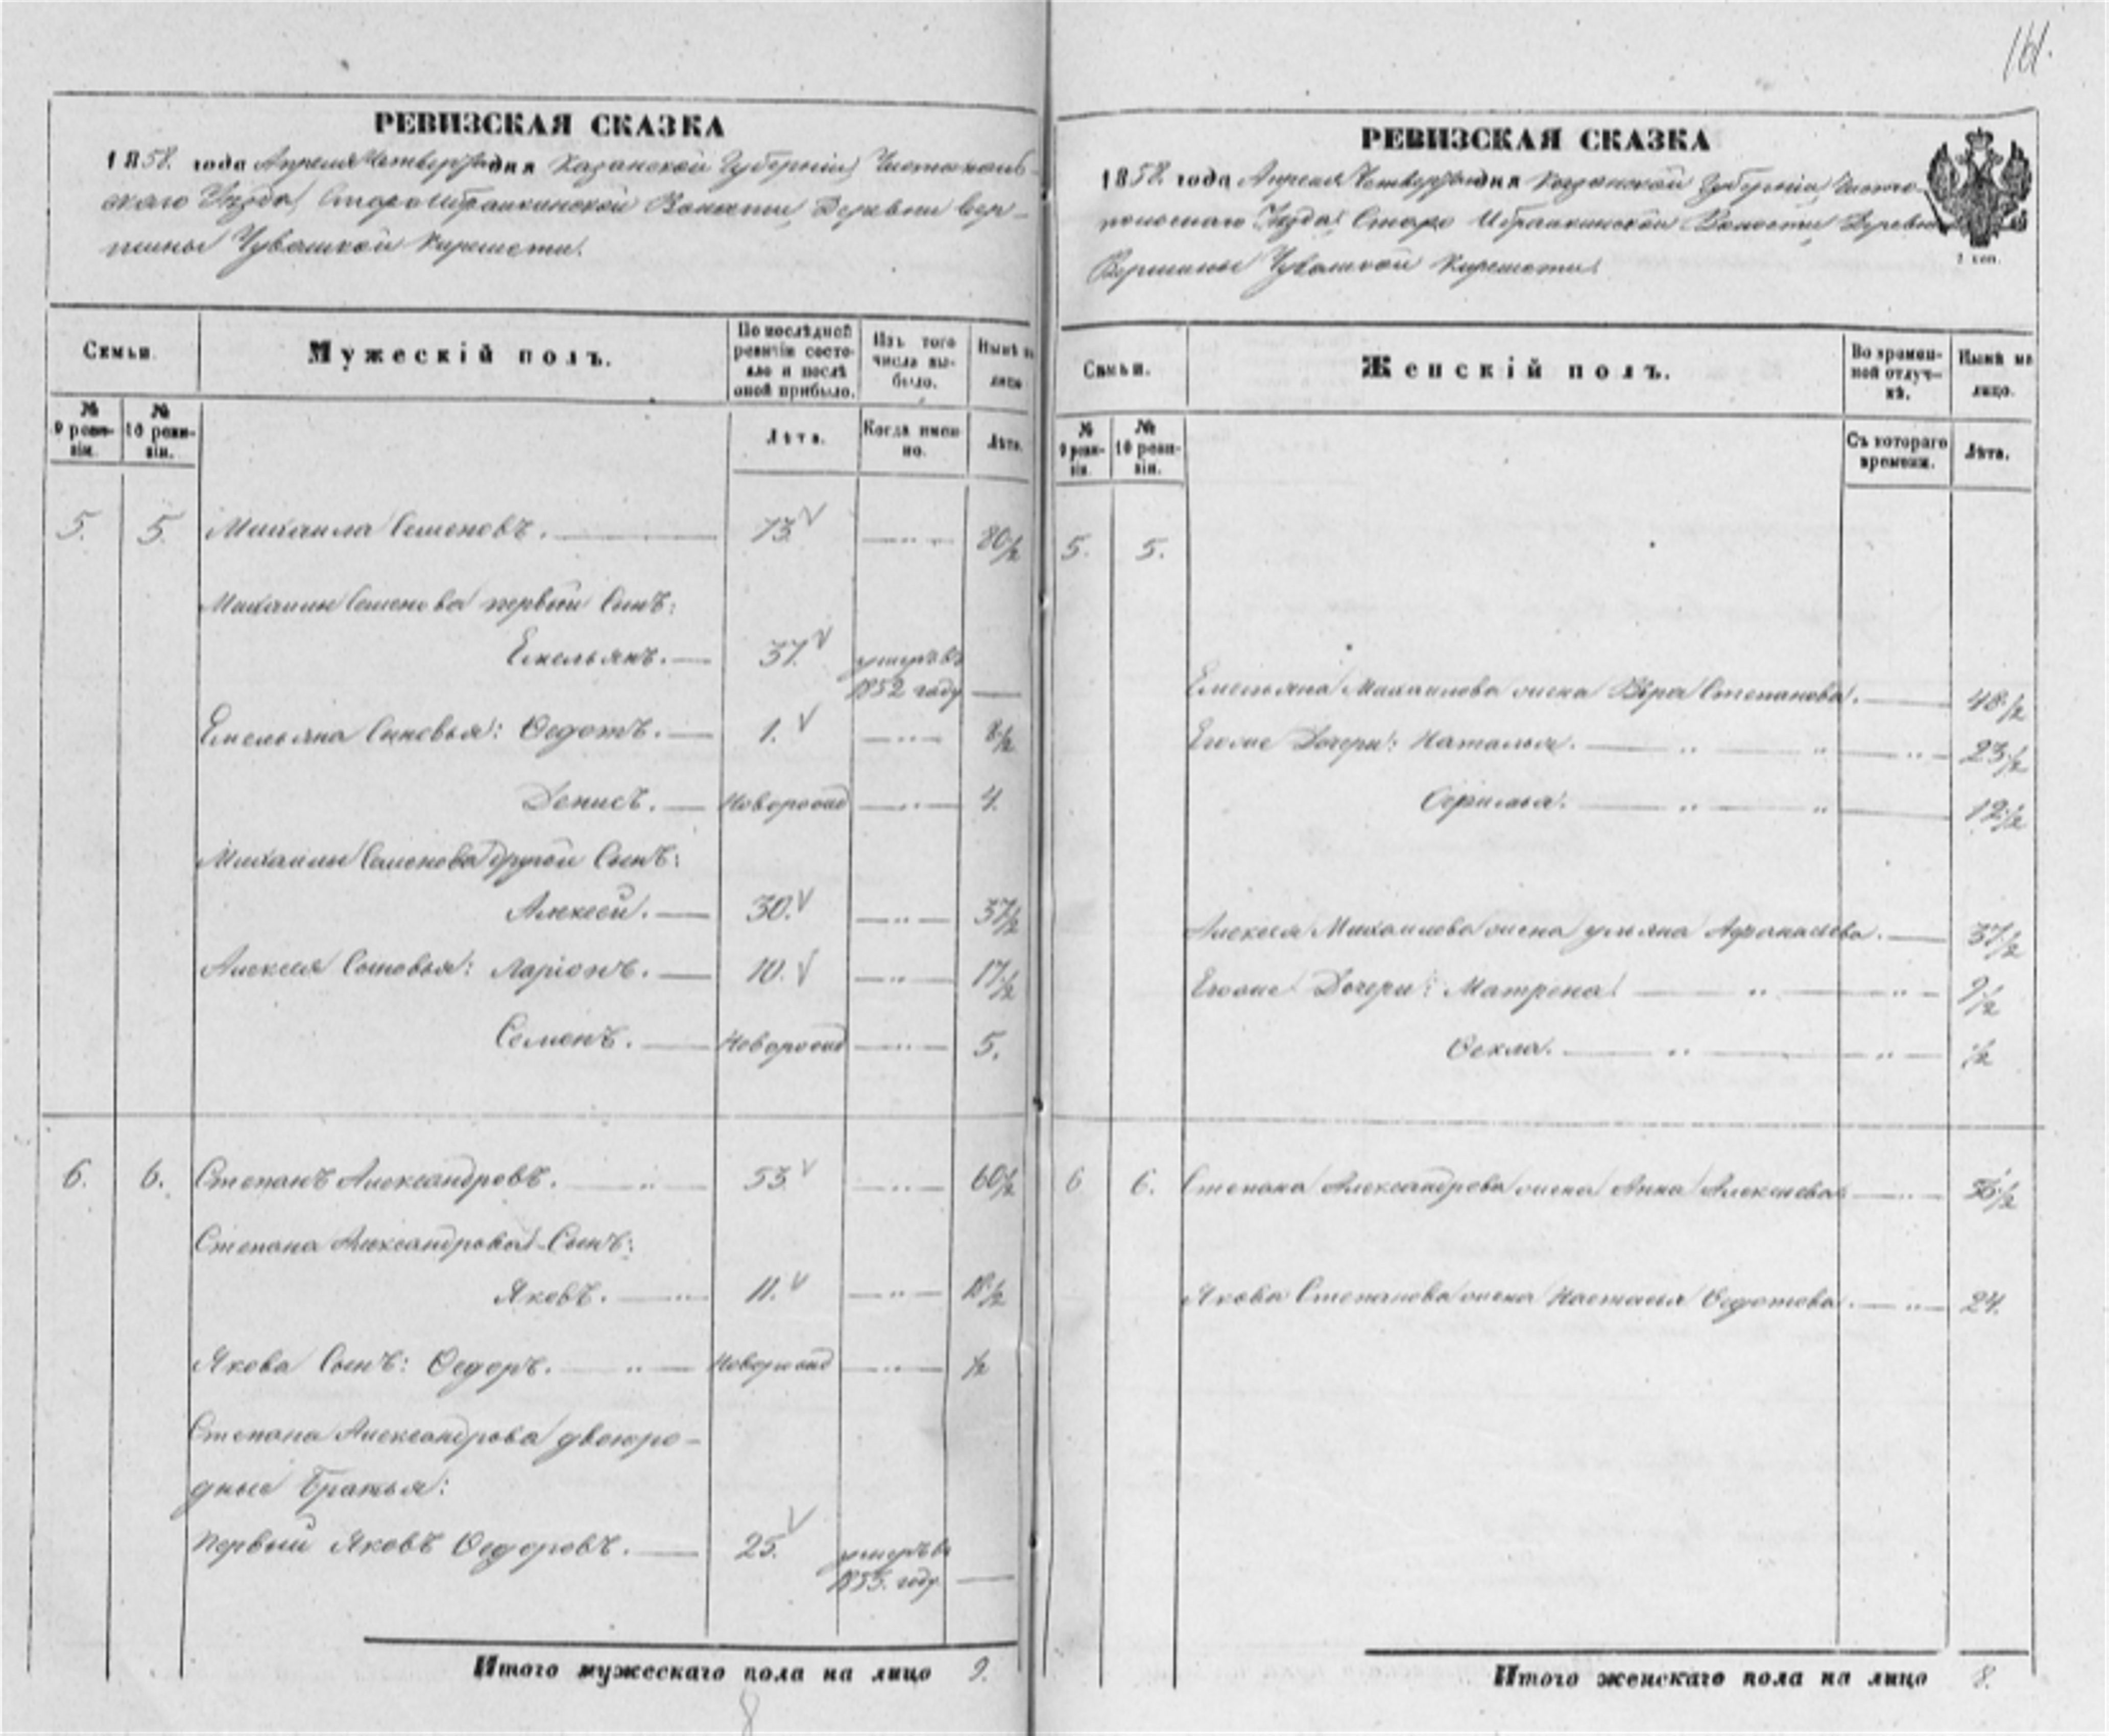 161.
РЕВИЗСКАЯ СКАЗКА
1858. года Апреля Четвертаго дня Казанской Губерніи Чистополь-
скаго Уезда Старо Ибраикинской Волости Деревни Вер-
шины Чувашской Киремети.
Семьи.
Мужескій полъ.
По послѣдней ревизіи состояло и послѣ оной прибыло.
Изъ того числа выбыло.
Нынѣ на лицо
№ 9 ревизіи.
№ 10 ревизіи.
Лѣта.
Когда именно.
Лѣта.
5. 5. Михаила Семеновъ. 73. 80 1/2
Михаилы Семенова первый Сынъ:
Емельянъ. 37. умеръ въ
1852 году
Емельяна Сыновья: Ѳедотъ. 1. 8 1/2
Денисъ. Новорожд 4.
Михаилы Семенова другой Сынъ:
Алексей. 30. 37 1/2
Алексея Сыновья: Ларіонъ. 10. 17 1/2
Семенъ. Новорожд 5.
6. 6. Степанъ Александровъ. 53 60 1/2
Степана Александрова Сынъ:
Яковъ. 11. 18 1/2
Якова Сынъ: Ѳедоръ. Новорожд 1/2
Степана Александрова двоюро-
дные Братья:
Первый Яковъ Ѳедоровъ. 25. умеръ въ
1855. году
Итого мужескаго пола на лицо 9.
8
РЕВИЗСКАЯ СКАЗКА
1858. года Апреля Четвертаго дня Казанской Губерніи Чисто-
польскаго Уезда Старо Ибраикинской Волости Деревни
Вершины Чувашской Киремети.
2 коп.
Семьи.
Женскій полъ.
Во временной отлучкѣ.
Нынѣ на лицо.
№ 9 ревизіи.
№ 10 ревизіи.
Съ котораго времени.
Лѣта.
5. 5.
Емельяна Михаилова жена Вѣра Степанова. 48 1/2
Егоже Дочери: Наталья. 23 1/2
12 1/2
Алексея Михаилова жена Ульяна Афанасьева. 37 1/2
Егоже Дочери: Матрена 9 1/2
Ѳекла. 1/2
6 6. Степана Александрова жена Анна Алексеева 56 1/2
Якова Степанова жена Настасья Ѳедотова. 24.
Итого женскаго пола на лицо 8.